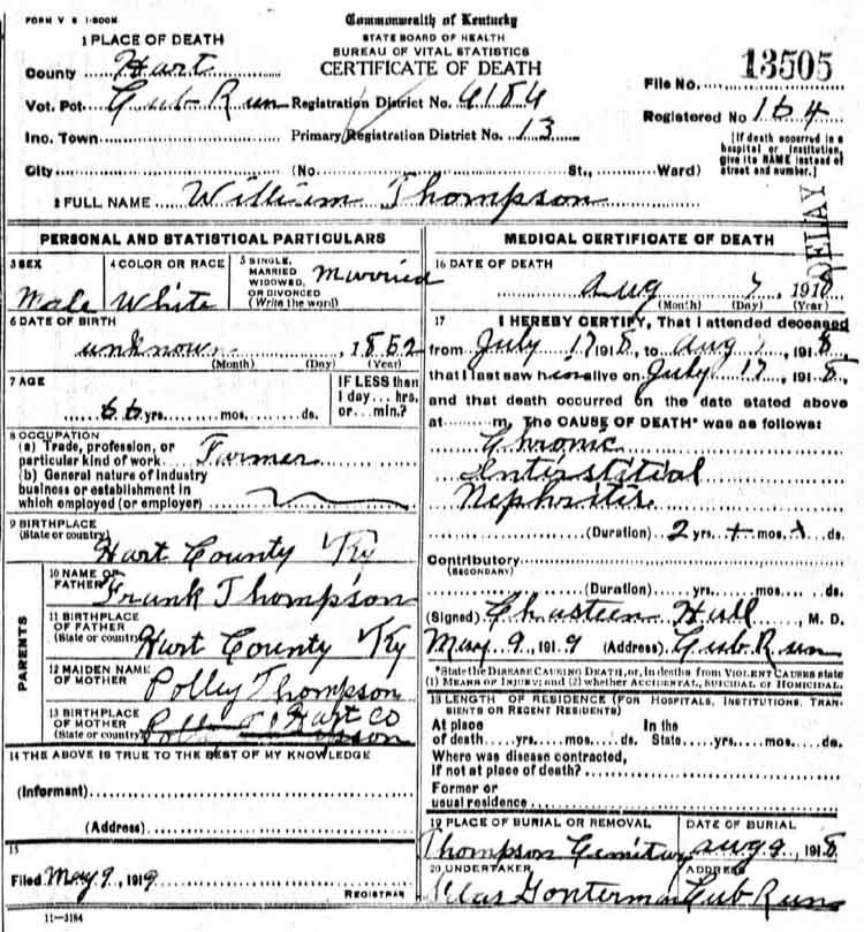 FORM V S 1-500M
Commonwealth of Kentucky
STATE BOARD OF HEALTH
BUREAU OF VITAL STATISTICS
CERTIFICATE OF DEATH
1 PLACE OF DEATH
County Hart
File No. 13505
Vot. Pct. Cub Run Registration District No. 6186
Registered No 164
Inc. Town Primary Registration District No. 13
[If death occurred in a hospital or institution, give its NAME instead of street and number.]
City (No. St., Ward)
2 FULL NAME William Thompson
DELAY
PERSONAL AND STATISTICAL PARTICULARS
3 SEX
Male
4 COLOR OR RACE
White
5 SINGLE, MARRIED WIDOWED, OR DIVORCED (Write the word)
Married
6 DATE OF BIRTH
unknown, 1852
(Month) (Day) (Year)
7 AGE
66 yrs. mos. ds.
IF LESS than 1 day... hrs. or... min.?
8 OCCUPATION
(a) Trade, profession, or
particular kind of work Farmer
(b) General nature of industry
business or establishment in
which employed (or employer)
9 BIRTHPLACE
(State or country)
Hart County Ky
PARENTS
10 NAME OF FATHER
Frank Thompson
11 BIRTHPLACE OF FATHER
(State or country) Hart County Ky
12 MAIDEN NAME OF MOTHER
Polley Thompson
13 BIRTHPLACE OF MOTHER
(State or country) Hart Co
14 THE ABOVE IS TRUE TO THE BEST OF MY KNOWLEDGE
(Informant)
(Address)
15
Filed May 9, 1919
REGISTRAR
11-3184
MEDICAL CERTIFICATE OF DEATH
16 DATE OF DEATH
Aug 7, 1918
(Month) (Day) (Year)
17 I HEREBY CERTIFY, That I attended deceased
from July 17 1918, to Aug 7, 1918,
that I last saw him alive on July 17, 1918,
and that death occurred on the date stated above
at m. The CAUSE OF DEATH* was as follows:
Chronic
Interstitial
Nephritis
(Duration) 2 yrs. mos. ds.
Contributory
(SECONDARY)
(Duration) yrs. mos. ds.
(Signed) Chasteen Hall, M. D.
May 9, 1919 (Address) Cub Run
*State the DISEASE CAUSING DEATH, or, in deaths from VIOLENT CAUSES state
(1) MEANS OF INJURY; and (2) whether ACCIDENTAL, SUICIDAL or HOMICIDAL.
18 LENGTH OF RESIDENCE (FOR HOSPITALS, INSTITUTIONS, TRANSIENTS OR RECENT RESIDENTS)
At place In the
of death yrs. mos. ds. State yrs. mos. ds.
Where was disease contracted,
If not at place of death?
Former or
usual residence
19 PLACE OF BURIAL OR REMOVAL
Thompson Cemitery
DATE OF BURIAL
Aug 9, 1918
20 UNDERTAKER
Gonterman
ADDRESS
Cub Run